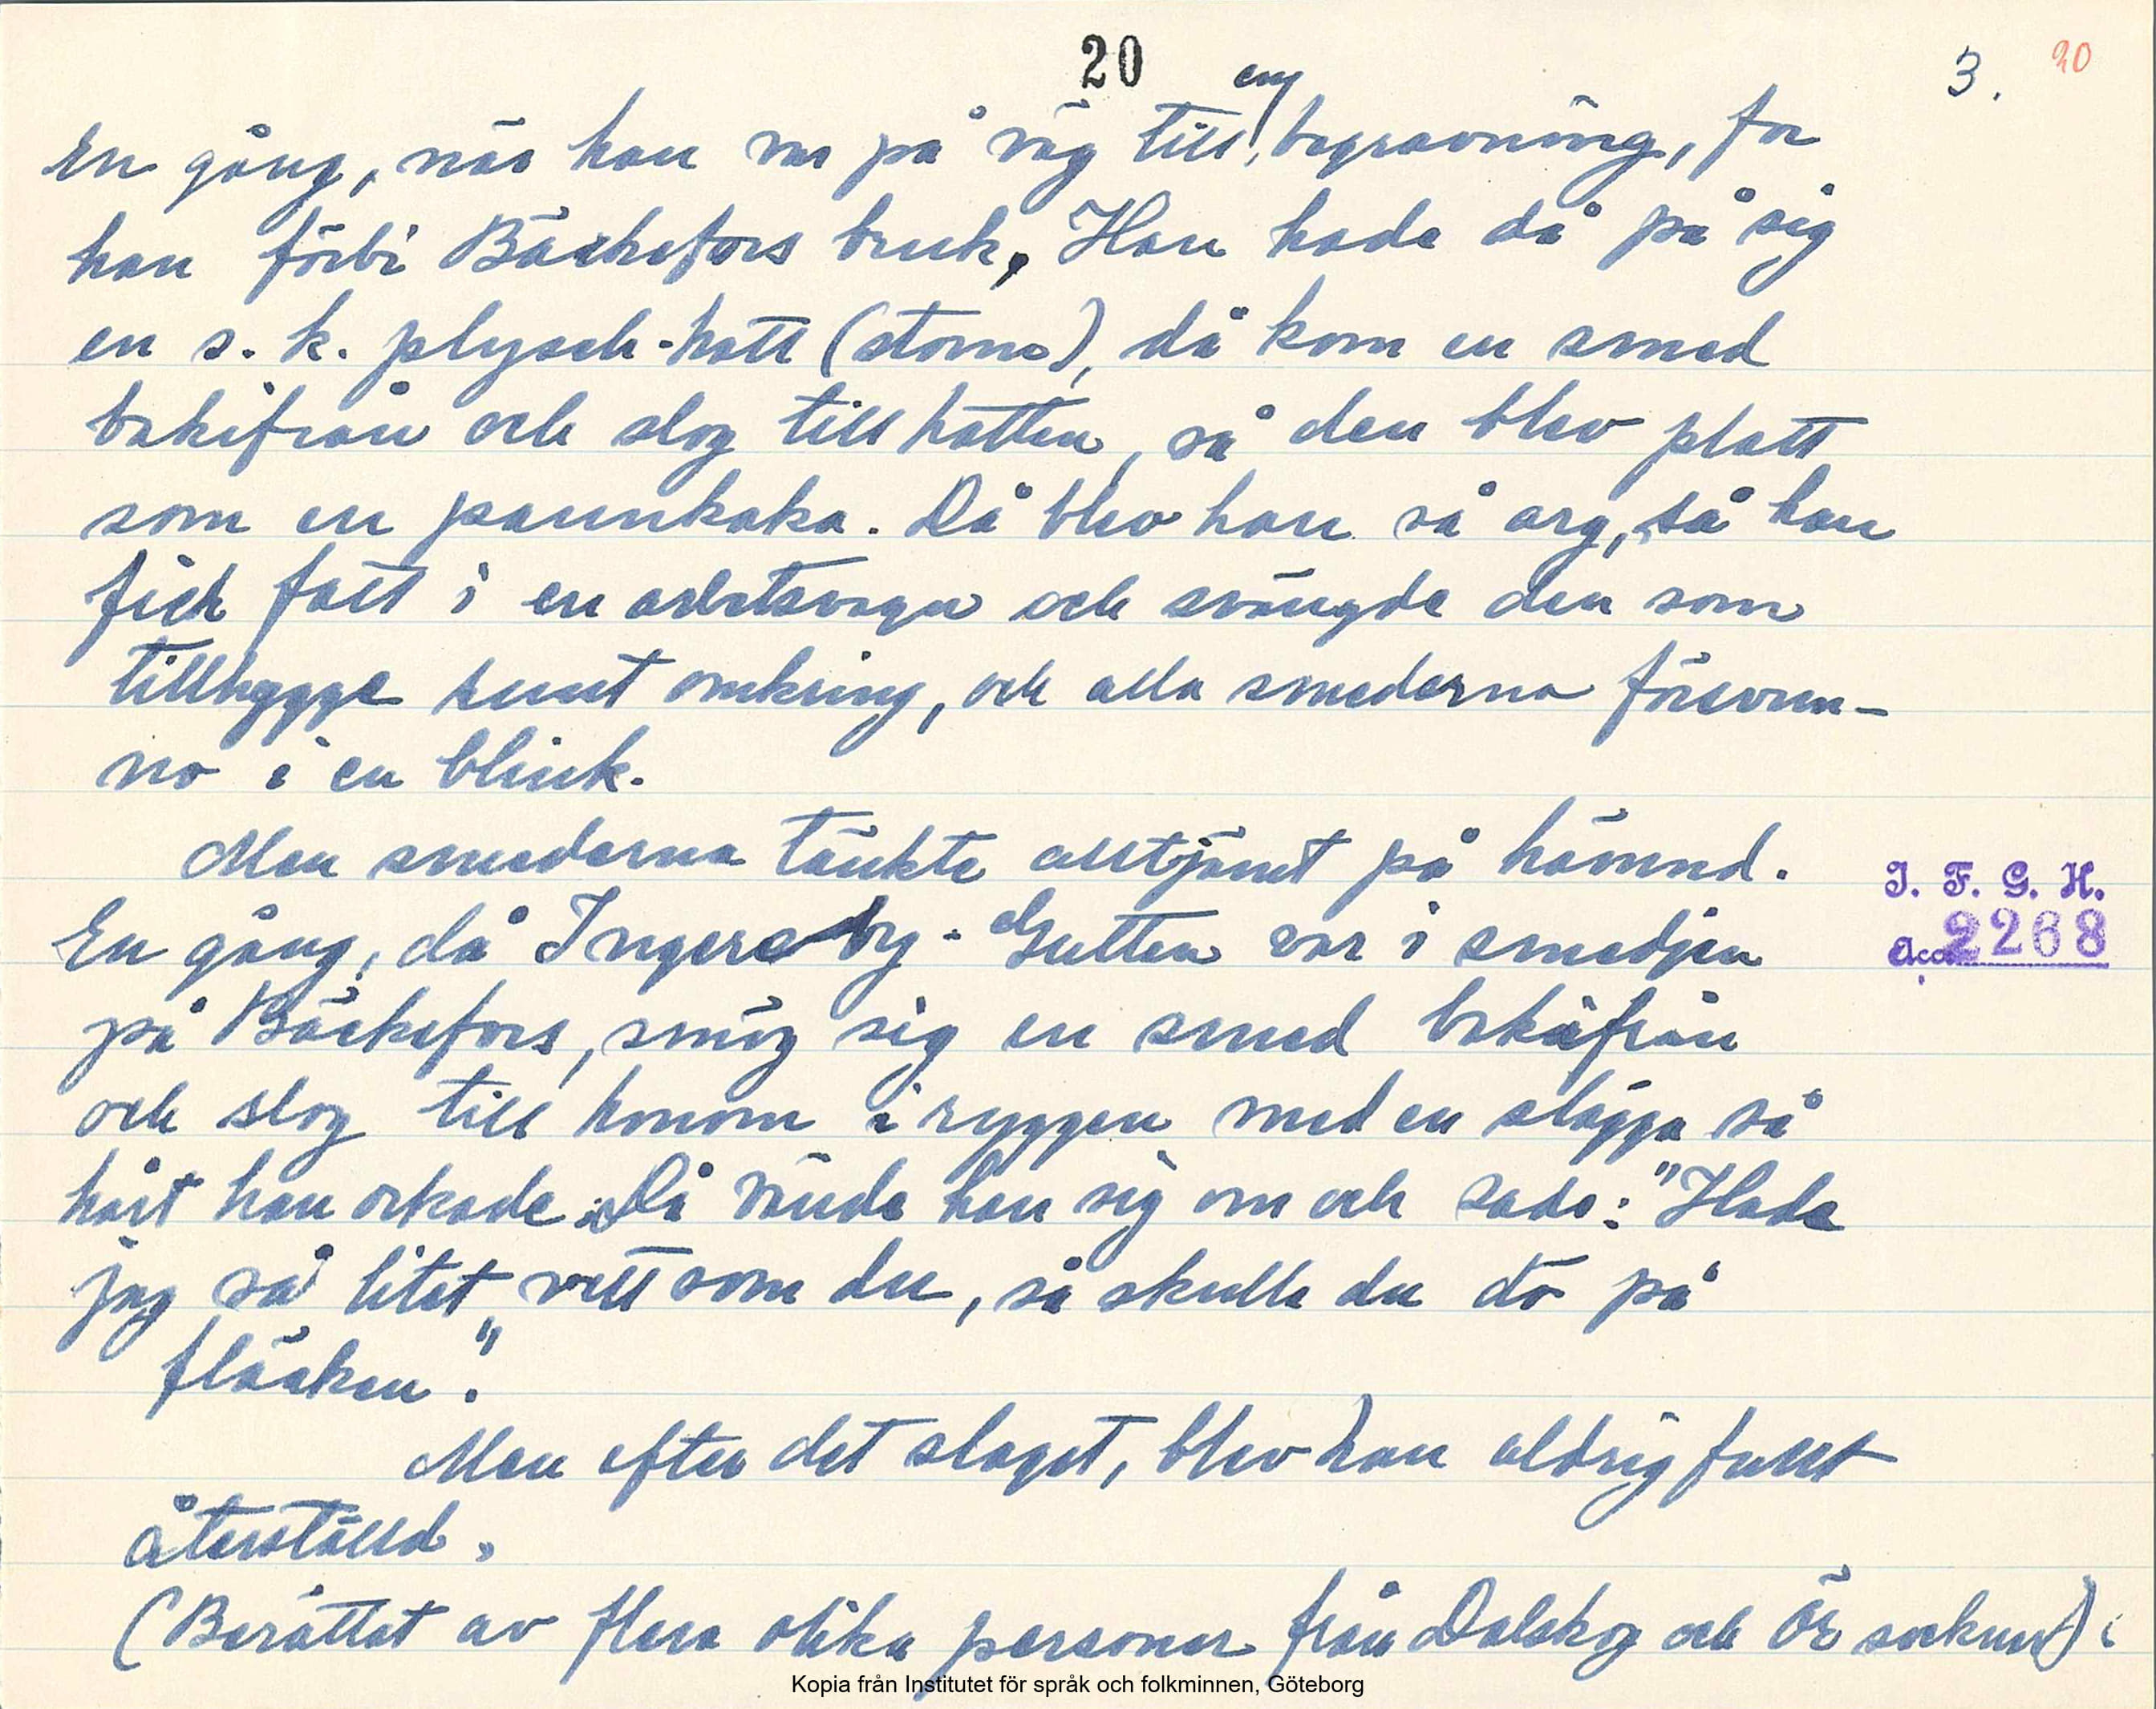 20
3. 20
en
En gång, när han var på väg till begravning, for
han förbi Bäckefors bruk, Han hade då på sig
en s. k. plysch-hatt (storm), då kom en smed
bakifrån och slog till hatten, så den blev platt
som en pannkaka. Då blev han så arg, så han
fick fatt i en arbetsvagn och svängde den som
tillhygge runt omkring, och alla smederna försvun-
no i en blink.
Men smederna tänkte alltjämt på hämnd.
I. F. G. H.
En gång, då Ingersby-Gutten var i smedjan
Acc. 2268
på Bäckefors, smög sig en smed bakifrån
och slog till honom i ryggen med en slägga så
hårt han orkade. Då vände han sig om och sade: "Hade
jag så litet vett som du, så skulle du dö på
fläcken."
Men efter det slaget, blev han aldrig fullt
återställd.
(Berättat av flera olika personer från Dalskog och Ör socknar).
Kopia från Institutet för språk och folkminnen, Göteborg